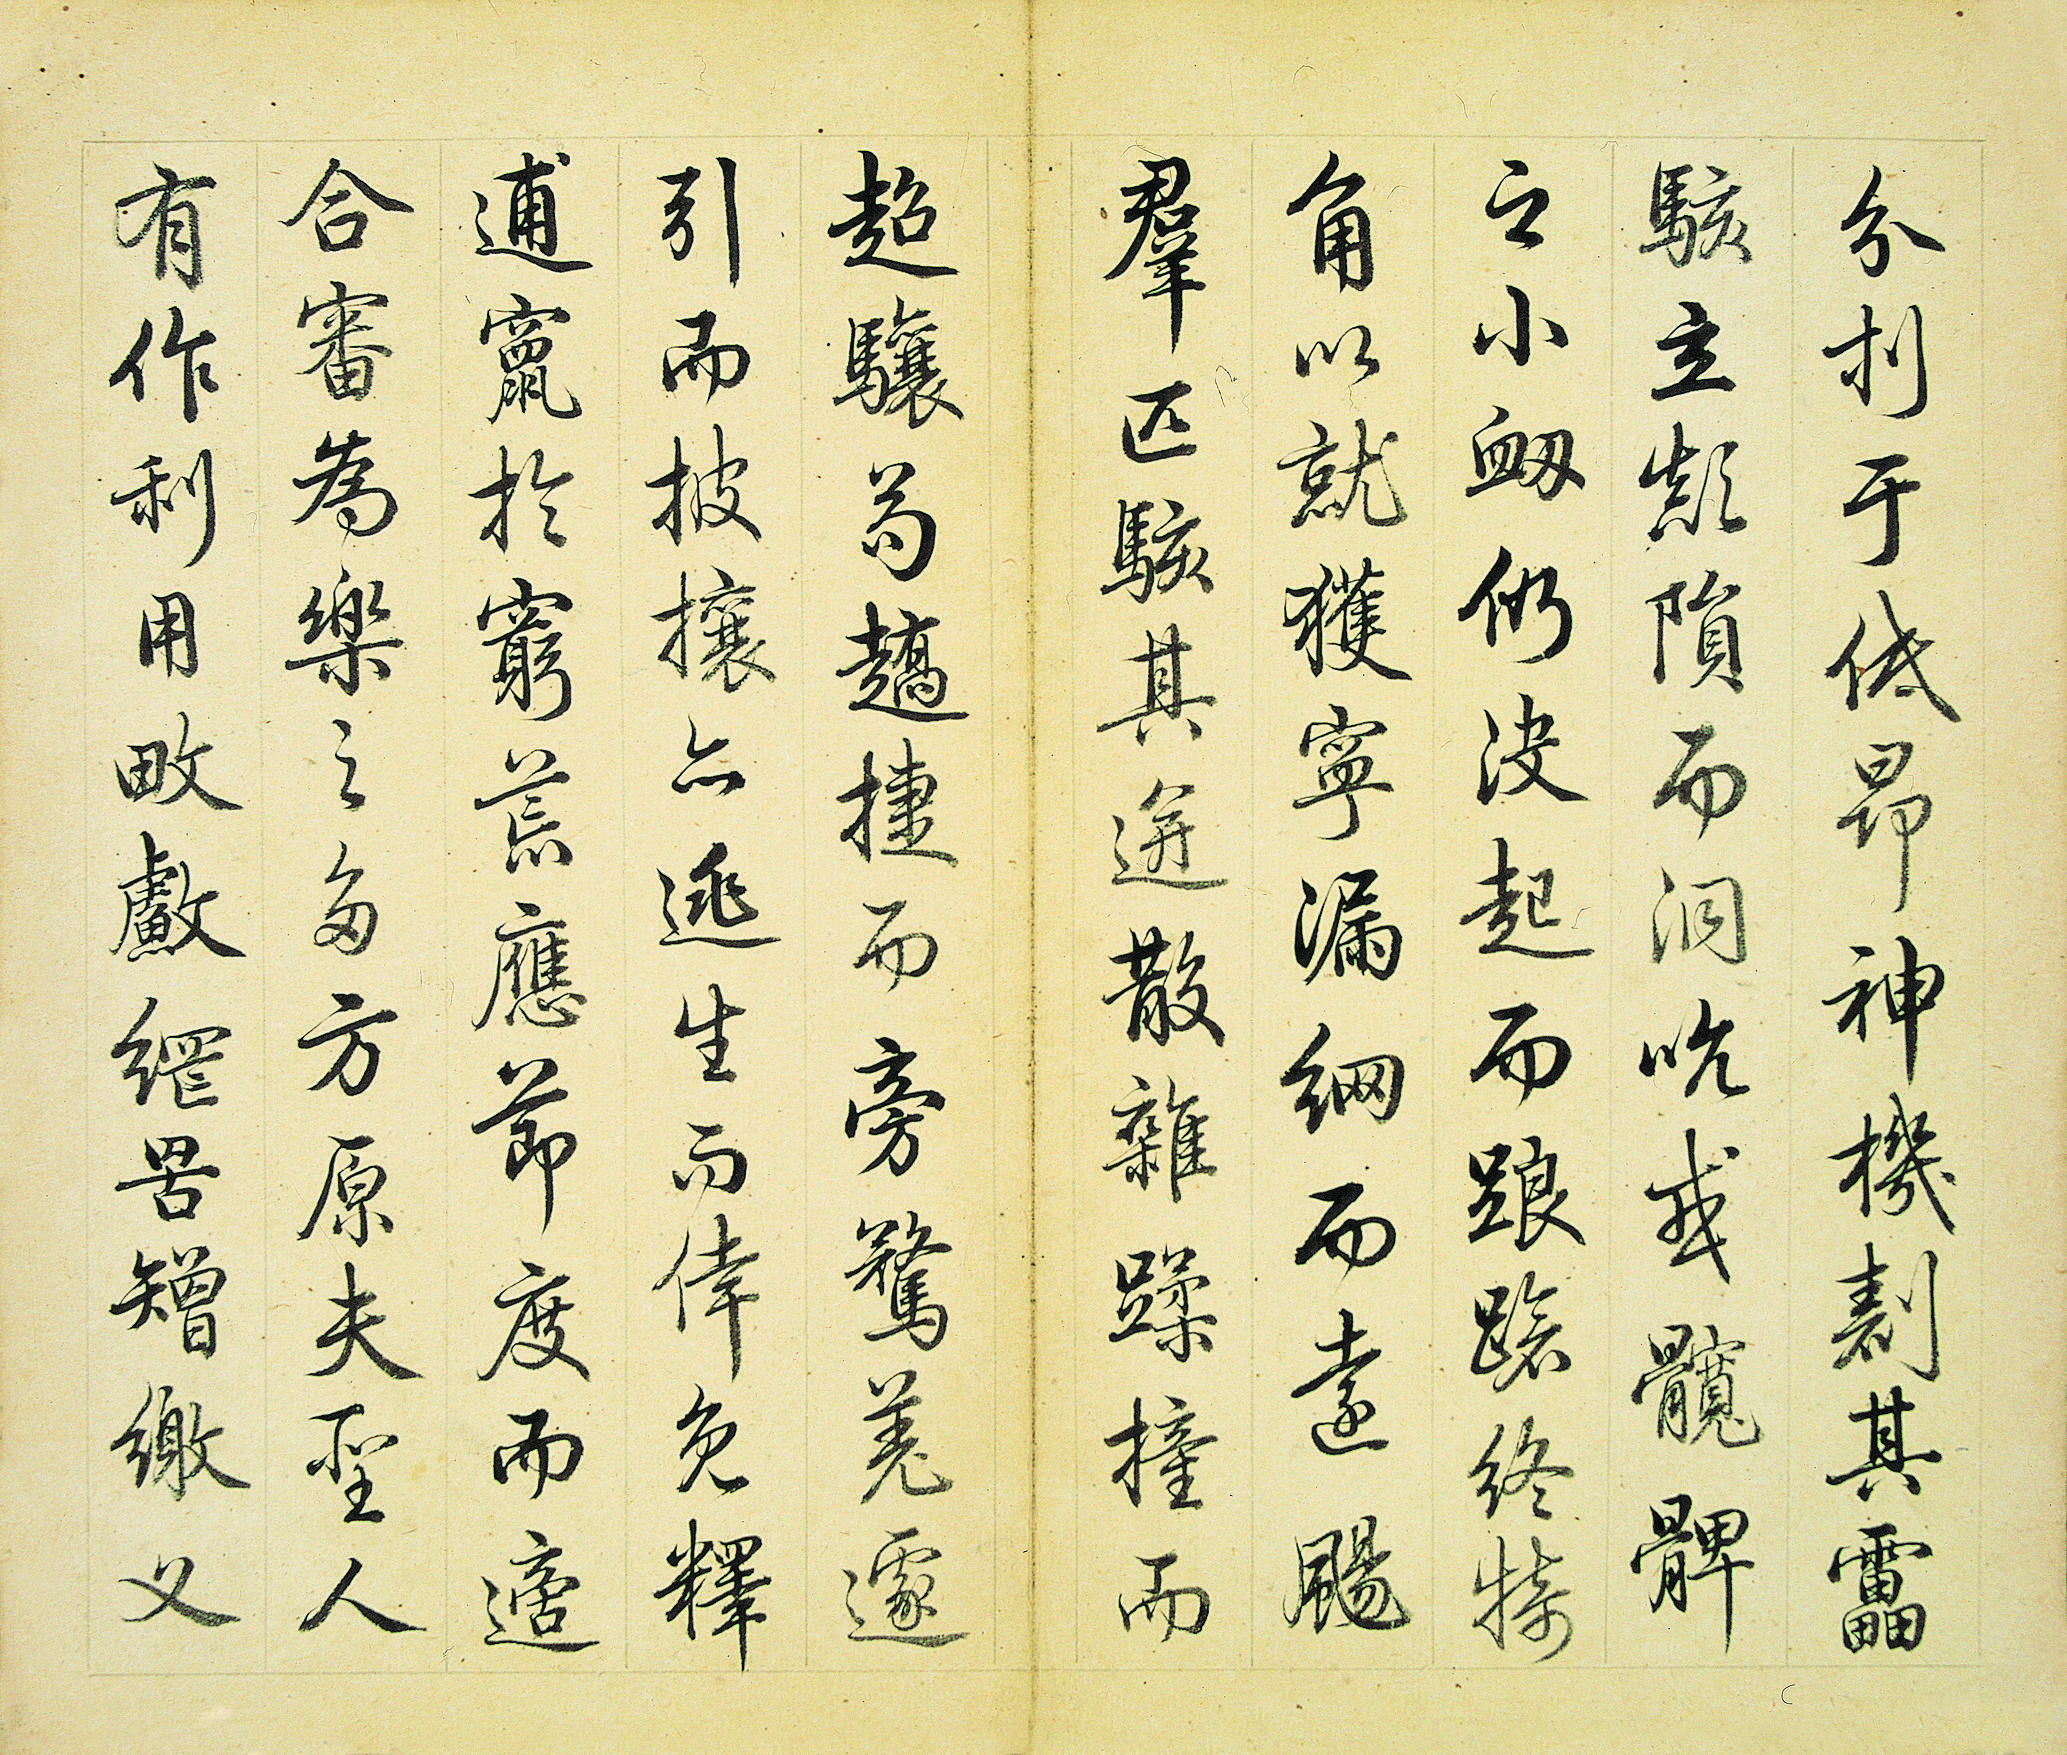 分刌于低昂神機剨其靁
駭立顛隕而洞吭或髖髀
之小衂仍決起而踉蹌終犄
角以就獲寧漏網而遠颺
羣匹駭其逬散雜蹂撞而
超驤苟趫捷而旁騖羗遽
引而披攘亦逃生而倖免釋
逋竄於窮荒應節度而適
合審為樂之多方原夫聖人
有作利用畋䱷罟矰繳乂